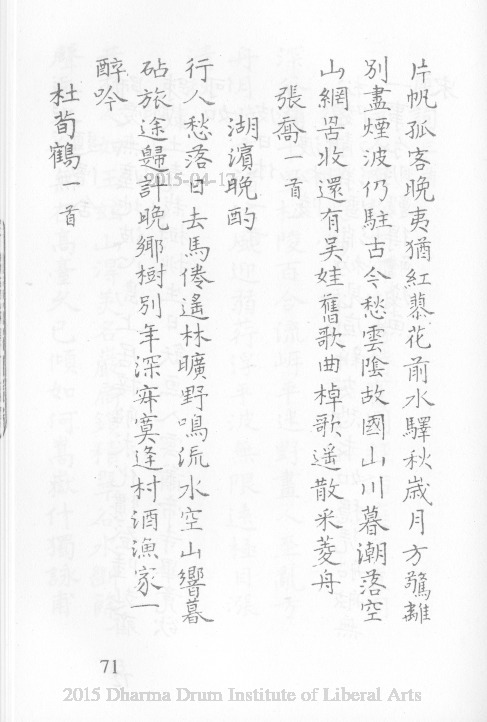 片帆孤客晚夷猶紅蓼花前水驛秋歲月方驚離
別盡煙波仍駐古今愁雲陰故國山川暮潮落空
山網罟收還有吳娃舊歌曲棹歌遙散采菱舟
張喬一首
湖濱晚酌
行人愁落日去馬倦遙林曠野鳴流水空山響暮
砧旅途歸計晚鄉樹別年深寂寞逢村酒漁家一
醉吟
杜荀鶴一首
2015-04-17
71
2015 Dharma Drum Institute of Liberal Arts